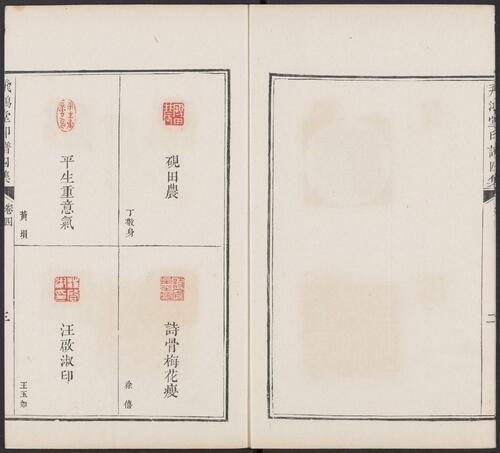 飛鴻堂印譜四集
二
硯田農
丁敬身
平生重意氣
黃塤
詩骨梅花瘦
徐僖
汪啟淑印
王玉如
飛鴻堂印譜四集
卷四
三